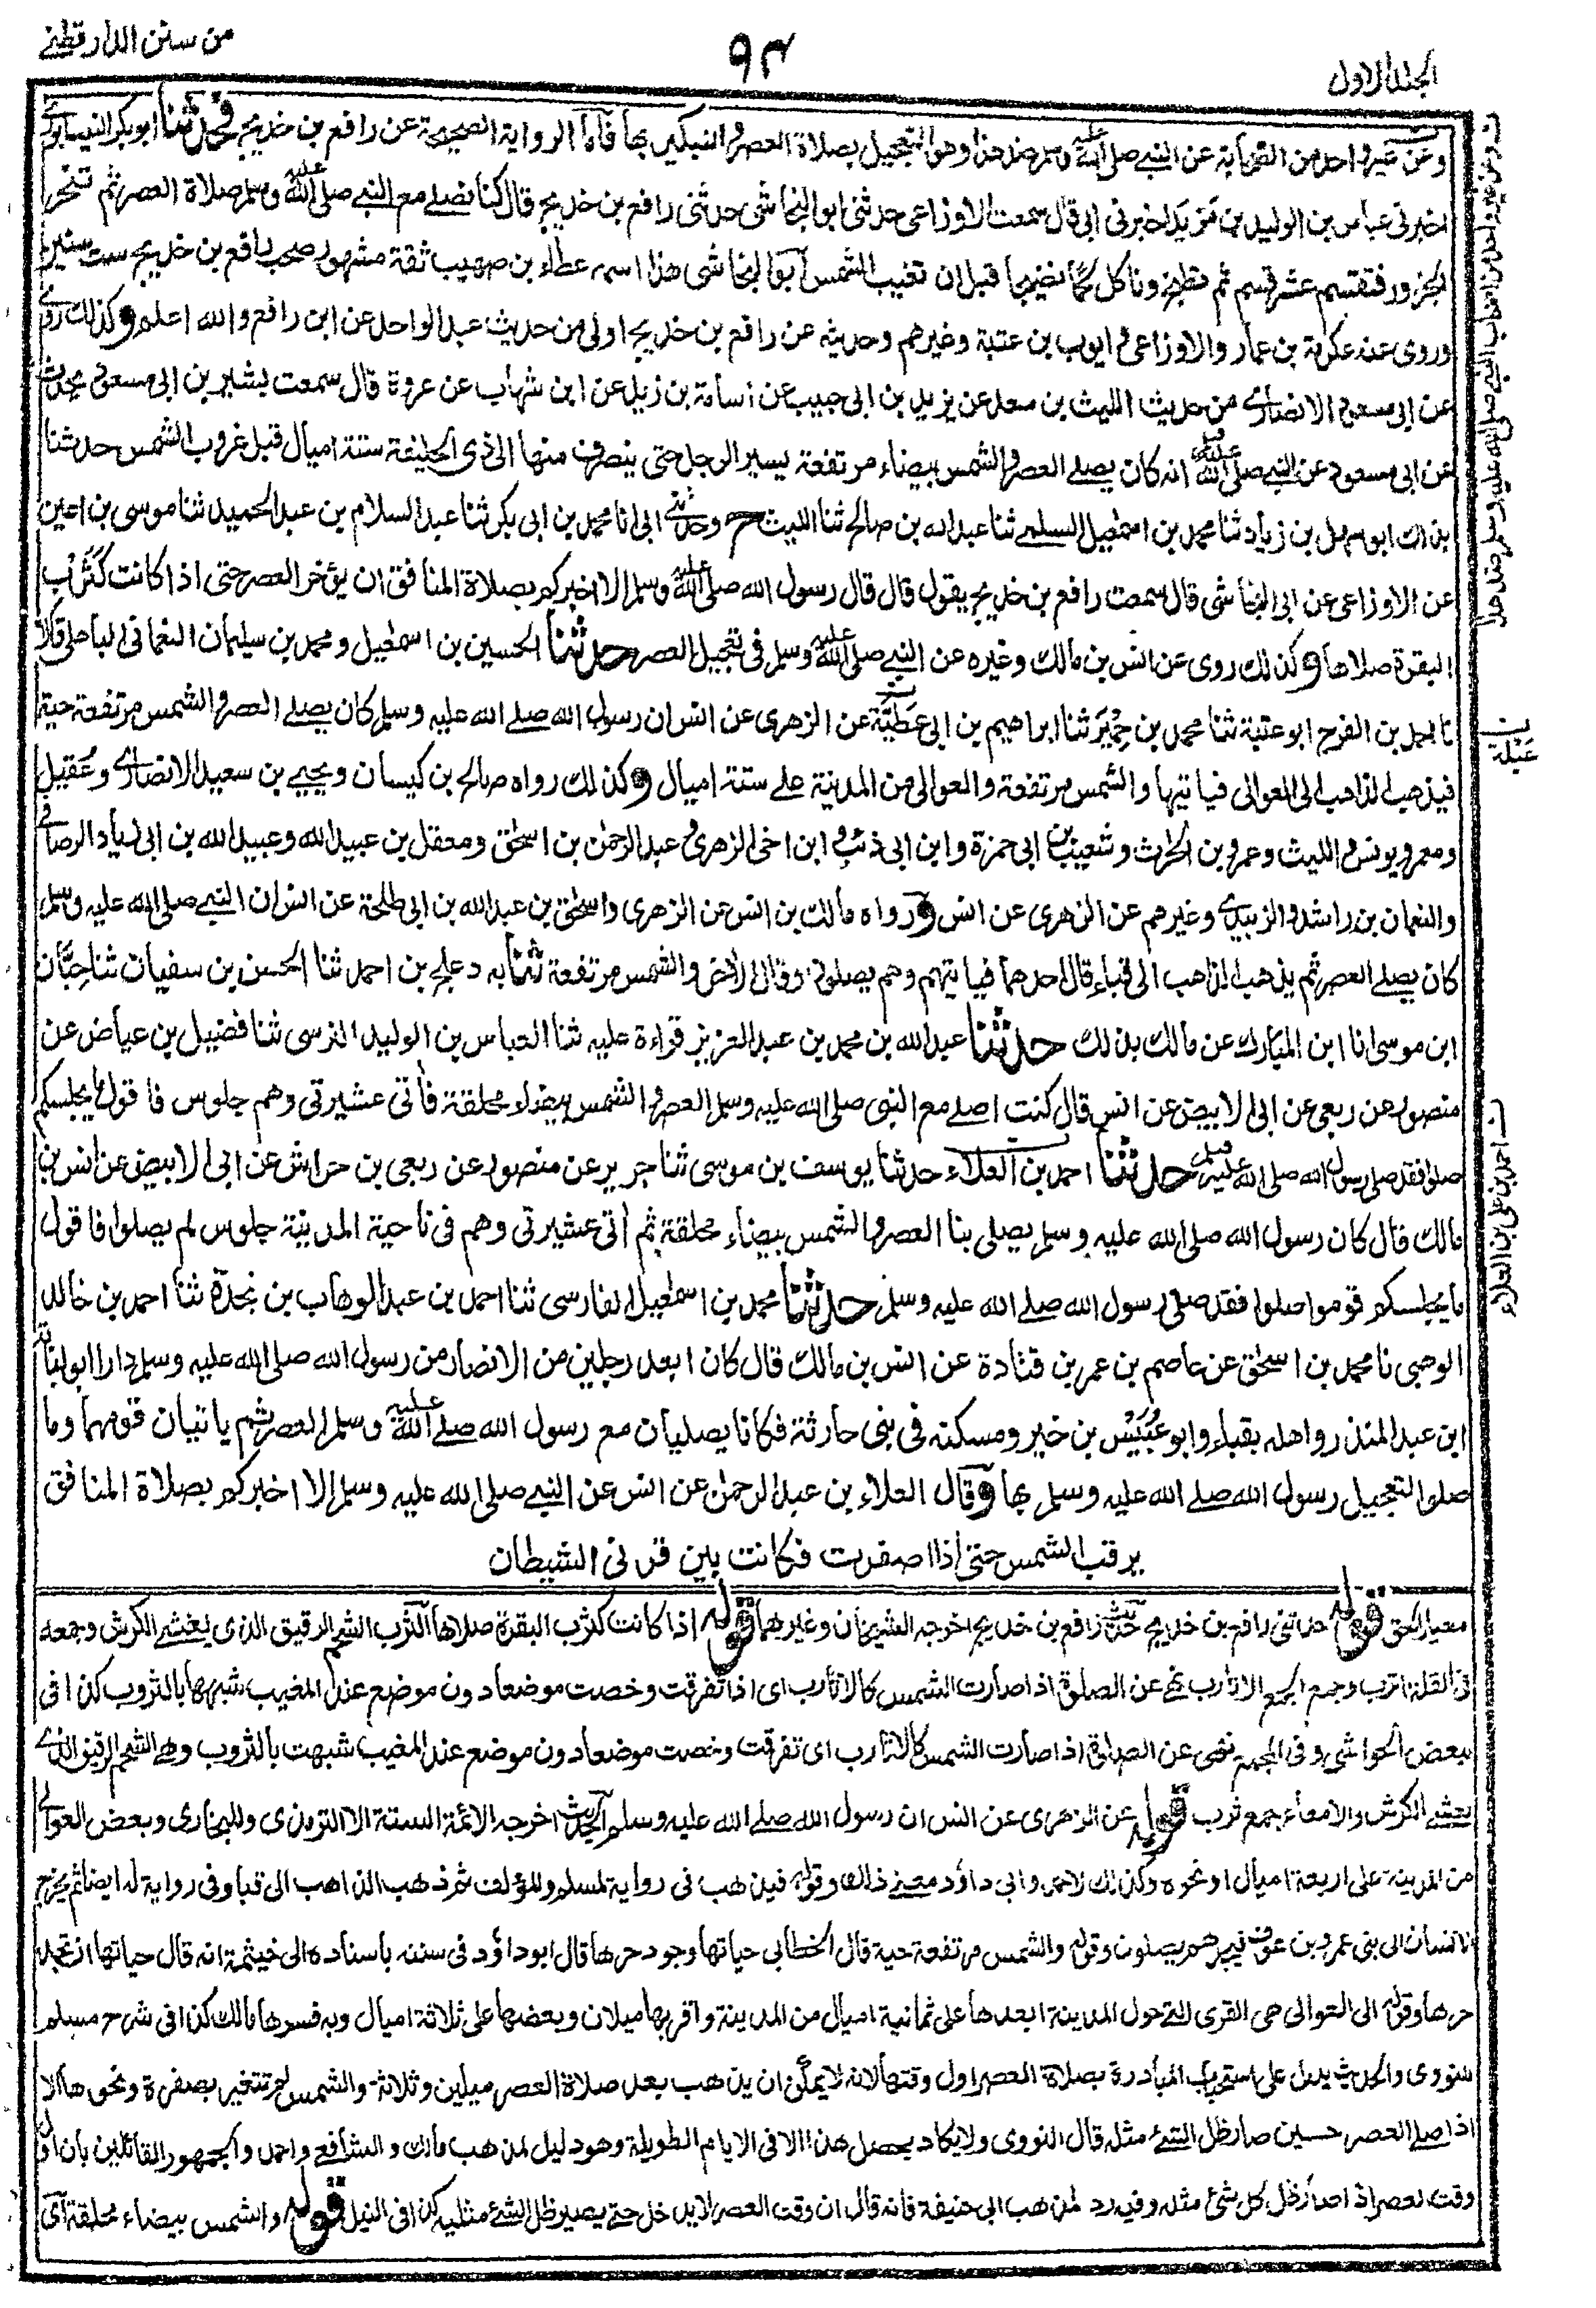 الجلد الاول
٩٣
من سنن الدارقطنے
وعن غير واحد من الصحابة عن النبے صلى الله عليه وسلم ضد هذا وهو التعجيل بصلاة العصر والتبكير بها فاما الرواية الصحيحة عن رافع بن خديج فحدثنا ابو بكر النيسابورے
اخبرنى عباس بن الوليد بن مَزْيَد اخبرنى ابى قال سمعت الاوزاعى حدثنى ابو النجاشى حدثنى رافع بن خديج قال كنا نصلے مع النبے صلى الله عليه وسلم صلاة العصر ثم تنحر
الجزور فتقسم عشر قسم ثم تطبخ وناكل لحمًا نضيجا قبل ان تغيب الشمس ابو النجاشى هذا اسمه عطاء بن صهيب ثقة مشهور صحب رافع بن خديج ست سنين
وروى عنه عكرمة بن عمار والاوزاعى وايوب بن عتبة وغيرهم وحديثه عن رافع بن خديج اولى من حديث عبد الواحد عن ابن رافع والله اعلم وكذلك روے
عن ابى مسعود الانصارے من حديث الليث بن سعد عن يزيد بن ابى حبيب عن اسامة بن زيد عن ابن شهاب عن عروة قال سمعت بشير بن ابى مسعود يحدث
عن ابى مسعود عن النبے صلى الله عليه وسلم انه كان يصلے العصر والشمس بيضاء مرتفعة يسير الرجل حتى ينصرف منها الى ذى الحليفة ستة اميال قبل غروب الشمس حدثنا
بذلك ابو سهل بن زياد ثنا محمد بن اسمعيل السلمے ثنا عبد الله بن صالح ثنا الليث ح وحدثنى ابى انا محمد بن ابى بكر ثنا عبد السلام بن عبد الحميد ثنا موسى بن اعين
عن الاوزاعى عن ابى النجاشى قال سمعت رافع بن خديج يقول قال قال رسول الله صلى الله عليه وسلم الا اخبركم بصلاة المنافق ان يؤخر العصر حتى اذا كانت كثَرْب
البقرة صلاها وكذلك روى عن انس بن مالك وغيره عن النبے صلى الله عليه وسلم فى تعجيل العصر حدثنا الحسين بن اسمعيل ومحمد بن سليمان النعمانى الباهلى قالا
نا احمد بن الفرج ابو عتبة ثنا محمد بن حِمْيَر ثنا ابراهيم بن ابى عَطِيَّة عن الزهرى عن انس ان رسول الله صلے الله عليه وسلم كان يصلے العصر والشمس مرتفعة حية
فيذهب الذاهب الى العوالى فياتيها والشمس مرتفعة والعوالى من المدينة علے ستة اميال وكذلك رواه صالح بن كيسان ويحيے بن سعيد الانصارے وعُقَيل
ومعمر ويونس والليث وعمرو بن الحرث وشعيب بن ابى حمزة وابن ابى ذئب وابن اخى الزهرى وعبد الرحمٰن بن اسحٰق ومعقل بن عبيد الله وعبيد الله بن ابى زياد الرصافى
والنعمان بن راشد والزبيدے وغيرهم عن الزهرى عن انس ورواه مالك بن انس عن الزهرى واسحٰق بن عبد الله بن ابى طلحة عن انس ان النبے صلى الله عليه وسلم
كان يصلے العصر ثم يذهب الذاهب الى قباء قال احدهما فياتيهم وهم يصلون وقال الآخر والشمس مرتفعة ثنا به دعلج بن احمد ثنا الحسن بن سفيان ثنا حِبَّان
ابن موسى انا ابن المبارك عن مالك بذلك حدثنا عبد الله بن محمد بن عبد العزيز قراءة عليه ثنا العباس بن الوليد النرسى ثنا فضيل بن عياض عن
منصور عن ربعى عن ابى الابيض عن انس قال كنت اصلے مع النبى صلى الله عليه وسلم العصر والشمس بيضاء محلقة فأتى عشيرتى وهم جلوس فاقول ما يجلسكم
صلوا فقد صلى رسول الله صلى الله عليه وسلم حدثنا احمد بن العلاء حدثنا يوسف بن موسى ثنا جرير عن منصور عن ربعى بن حراش عن ابى الابيض عن انس بن
مالك قال كان رسول الله صلى الله عليه وسلم يصلى بنا العصر والشمس بيضاء محلقة ثم أتى عشيرتى وهم فى ناحية المدينة جلوس لم يصلوا فاقول
ما يجلسكم قوموا صلوا فقد صلى رسول الله صلے الله عليه وسلم حدثنا محمد بن اسمعيل الفارسى ثنا احمد بن عبد الوهاب بن نجدة ثنا احمد بن خالد
الوهبى نا محمد بن اسحٰق عن عاصم بن عمر بن قتادة عن انس بن مالك قال كان ابعد رجلين من الانصار من رسول الله صلى الله عليه وسلم دارا ابو لبابة
ابن عبد المنذر واهله بقباء وابو عُبَيْس بن خير ومسكنه فى بنى حارثة فكانا يصليان مع رسول الله صلے الله عليه وسلم العصر ثم ياتيان قومهما وما
صلوا لتعجيل رسول الله صلے الله عليه وسلم بها وقال العلاء بن عبد الرحمٰن عن انس عن النبے صلى الله عليه وسلم الا اخبركم بصلاة المنافق
يرقب الشمس حتى اذا اصفرت فكانت بين قرنى الشيطان
معيار الحق قوله حدثنى رافع بن خديج حديث رافع بن خديج اخرجه الشيخان وغيرهما قوله اذا كانت كثرب البقرة صلاها الثرب الشحم الرقيق الذى يغشے الكرش وجمعه
فى القلة اثرب وجمع الجمع الاثارب نهى عن الصلوة اذا صارت الشمس كالاثارب اى اذا تفرقت وخصت موضعا دون موضع عند المغيب شبهها بالثروب كذا فى
بعض الحواشى وفى المجمع نهى عن الصلوة اذا صارت الشمس كالاثارب اى تفرقت وخصت موضعا دون موضع عند المغيب شبهت بالثروب وهے الشحم الرقيق الذے
يغشے الكرش والامعاء جمع ثرب قوله عن الزهرى عن انس ان رسول الله صلے الله عليه وسلم الحديث اخرجه الائمة الستة الا الترمذى وللبخارى وبعض العوالے
من المدينة على اربعة اميال او نحوه وكذلك لاحمد وابى داؤد معنے ذلك وقوله فيذهب فى رواية لمسلم وللمؤلف ثم ذهب الذاهب الى قبا وفى رواية له ايضا ثم يخرج
الانسان الى بنى عمرو بن عوف فيجدهم يصلون وقوله والشمس مرتفعة حية قال الخطابى حياتها وجود حرها قال ابو داؤد فى سننه باسناده الى خيثمة انه قال حياتها ان تجد
حرها وقوله الى العوالى هى القرى التے حول المدينة ابعدها على ثمانية اميال من المدينة واقربها ميلان وبعضها على ثلاثة اميال وبه فسرها مالك كذا فى شرح مسلم
للنووى والحديث يدل على استحباب المبادرة بصلاة العصر اول وقتها لانه لا يمكن ان يذهب بعد صلاة العصر ميلين وثلاثة والشمس لم تتغير بصفرة ونحوها الا
اذا صلے العصر حين صار ظل الشئ مثله قال النووى ولا يكاد يحصل هذا الا فى الايام الطويلة وهو دليل لمذهب مالك والشافعے واحمد والجمهور القائلين بان اول
وقت العصر اذا صار ظل كل شئ مثله وفيه رد لمذهب ابى حنيفة فانه قال ان وقت العصر لا يدخل حتے يصير ظل الشئ مثليه كذا فى النيل قوله والشمس بيضاء محلقة اى
وعن غير واحد من اصحاب النبے صلى الله عليه وسلم ضد هذا
عَبْلة
احمد بن على بن العلاء